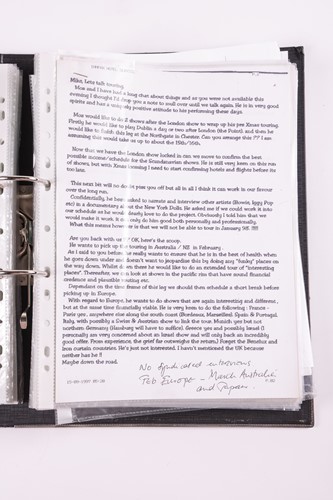 Mike, Lets talk touring.
Moz and I have had a long chat about things and as you were not available this
evening I thought I'd drop you a note to mull over until we talk again. He is in very good
spirits and has a very positive attitude to his performing these days.
Moz would like to do 2 shows after the London show to wrap up his pre Xmas touring
Firstly he would like to play Dublin a day or two after London (the Point) and then he
would like to finish this leg at the Northgate in Chester. Can you arrange this ?? I am
assuming this would take us up to about the 15th/16th.
Now that we have the London show locked in can we move to confirm the best
possible income/schedule for the Scandanavian shows. He is still very keen on this run
of shows, but with Xmas looming I need to start confirming hotels and flights before its
too late.
This next bit will no doubt piss you off but all in all I think it can work in our favour
over the long run.
Confidentially, he has been asked to narrate and interview other artists (Bowie, Iggy Pop
etc) in a documentary about the New York Dolls. He asked me if we could work it into
our schedule as he would dearly love to do the project. Obviously I told him that we
would make it work. It can only do him good both personally and professionally.
What this means however is that we will not be able to tour in January 98. !!!!
Are you back with us ?? OK, here's the scoop.
He wants to pick up the touring in Australia / NZ in February.
As I said to you before he really wants to ensure that he is in the best of health when
he goes down under and doesn't want to jeopardise this by doing any "funky" places on
the way down. Whilst down there he would like to do an extended tour of "interesting
places". Thereafter, we can look at shows in the pacific rim that would avoid financial
condoms and plausible routing etc.
Dependant on the time frame of this leg we should then schedule a short break before
picking up in Europe.
With regard to Europe, he wants to do shows that are again interesting and different,
but at the same time financially viable. He is very keen to do the following : France -
Paris yes, anywhere else along the south coast (Bordeaux, Marseilles); Spain & Portugal,
Italy, with possibly a Swiss & Austrian show to link the tour, Munich yes but not
northern Germany (Hamburg will have to suffice), Greece yes and possibly Israel (I
personally am very concerned about an Israel show and will only back up an incredibly
good offer. From experience, the grief far outweighs the return.) Forget the Benelux and
iron curtain countries. He's just not interested. I haven't mentioned the UK because
neither has he !!
Maybe down the road.
No Syndicated interviews
Feb Europe - March Australia
and Japan.